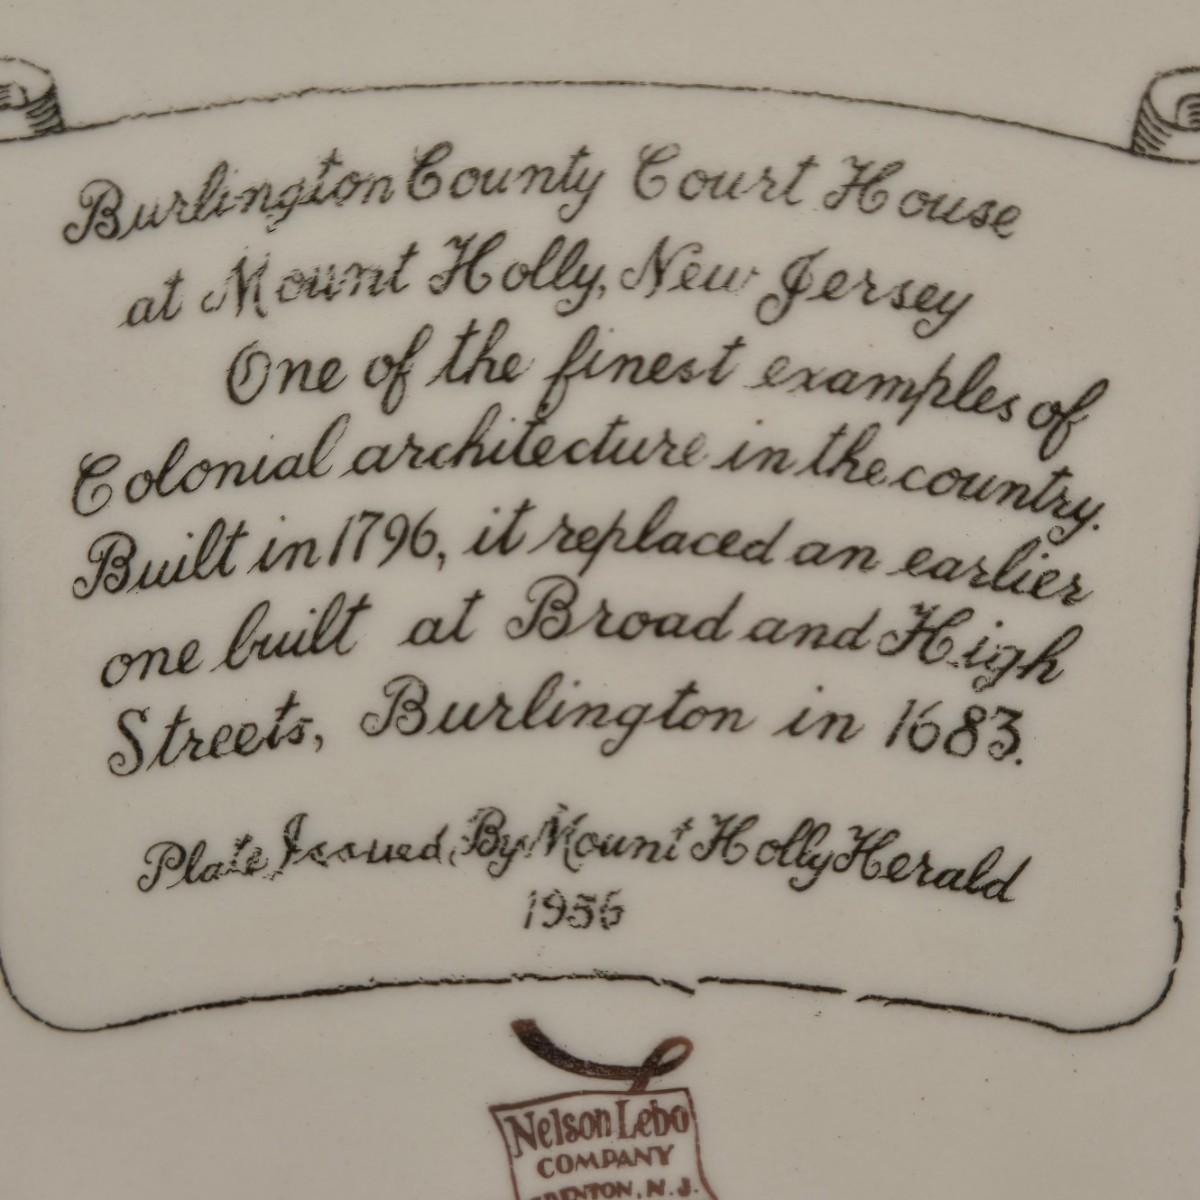 Burlington County Court House
at Mount Holly, New Jersey
One of the finest examples of
Colonial architecture in the country.
Built in 1796, it replaced an earlier
one built at Broad and High
Streets, Burlington in 1683.
Plate Issued By Mount Holly Herald
1956
Nelson Lebo
COMPANY
TRENTON, N.J.